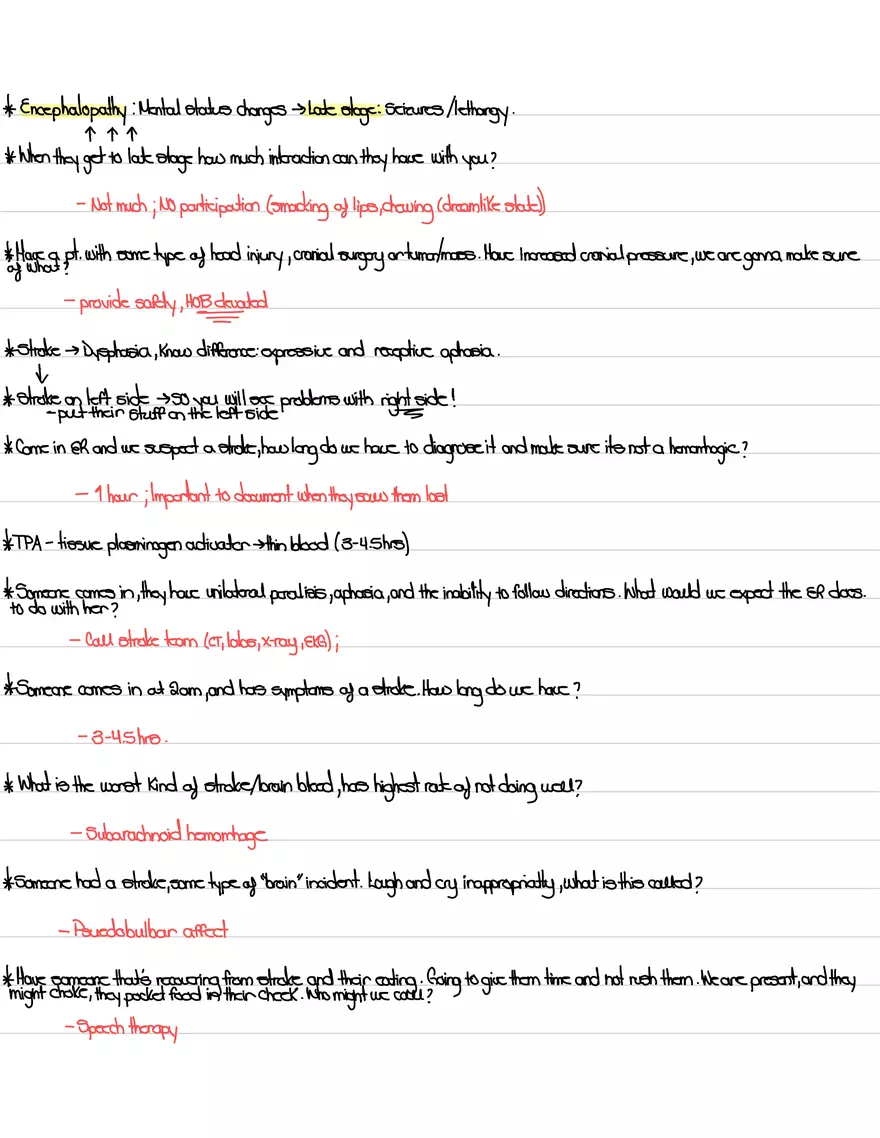 * Encephalopathy: Mental status changes → Late stage: Seizures/lethargy.
↑ ↑ ↑
* When they get to late stage how much interaction can they have with you?
- Not much; NO participation (smacking of lips, chewing (dreamlike state))
* Have a pt. with some type of head injury, cranial surgery or tumor/mass. Have Increased cranial pressure, we are gonna make sure
of what?
- provide safety, HOB elevated
* Stroke → Dysphasia, Know difference: expressive and receptive aphasia.
↓
* Stroke on left side → so you will see problems with right side!
- put their stuff on the left side
* Come in ER and we suspect a stroke, how long do we have to diagnose it and make sure its not a hemorrhagic?
- 1 hour; Important to document when they saw them last
* TPA - tissue plasminogen activator → thin blood (3-4.5hrs)
* Someone comes in, they have unilateral paralisis, aphasia, and the inability to follow directions. What would we expect the ER docs.
to do with her?
- Call stroke team (CT, labs, X-ray, EKG);
* Someone comes in at 2am, and has symptoms of a stroke. How long do we have?
- 3-4.5 hrs.
* What is the worst Kind of stroke/brain bleed, has highest rate of not doing well?
- Subarachnoid hemorrhage
* Someone had a stroke, some type of "brain" incident. Laugh and cry inappropriatly, what is this called?
- Psuedobulbar affect
* Have someone that's recovering from stroke and their eating. Going to give them time and not rush them. We are present, and they
might choke, they pocket food in their cheek. Who might we call?
- Speech therapy